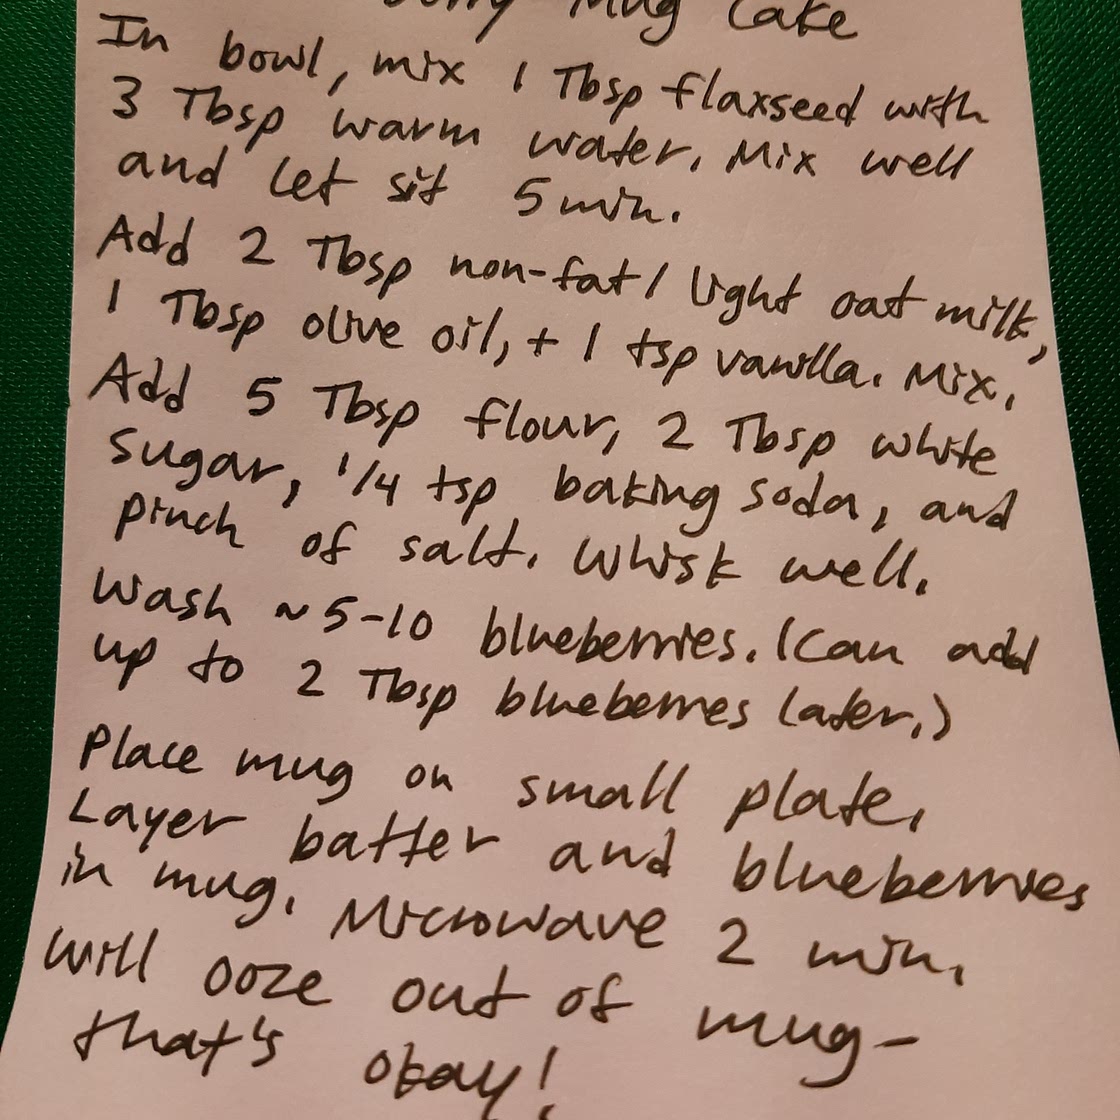 Mug Cake
In bowl, mix 1 Tbsp flaxseed with
3 Tbsp warm water. Mix well
and let sit 5 min.
Add 2 Tbsp non-fat/light oat milk,
1 Tbsp olive oil, + 1 tsp vanilla. Mix.
Add 5 Tbsp flour, 2 Tbsp white
sugar, 1/4 tsp baking soda, and
pinch of salt. Whisk well.
Wash ~5-10 blueberries. (Can add
up to 2 Tbsp blueberries later.)
Place mug on small plate.
Layer batter and blueberries
in mug. Microwave 2 min.
Will ooze out of mug-
that's okay!